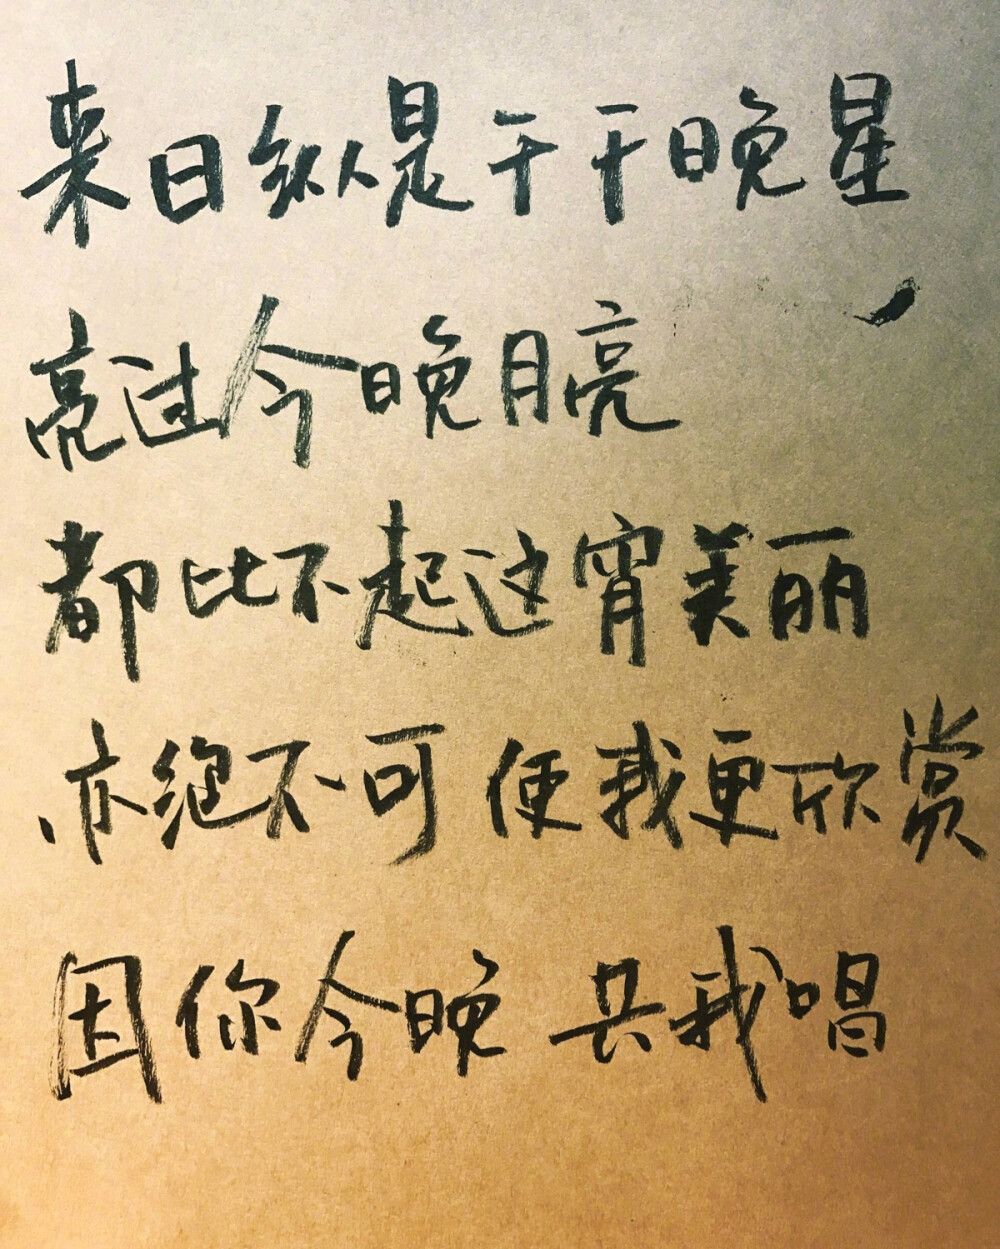 来日纵是千千晚星
亮过今晚月亮
都比不起这宵美丽
亦绝不可使我更欣赏
因你今晚共我唱